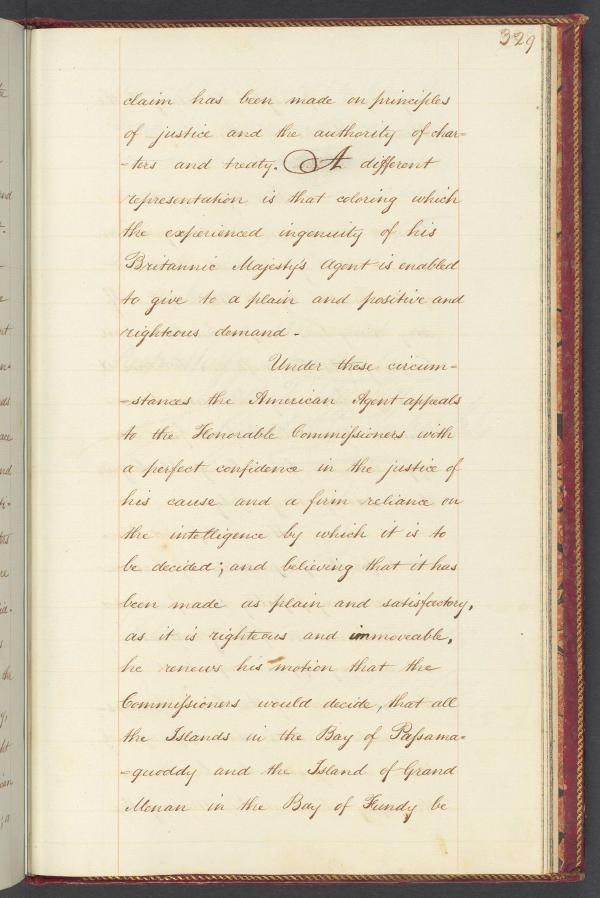 329
claim has been made on principles
of justice and the authority of char=
=ters and treaty. A different
representation is that coloring which
the experienced ingenuity of his
Britannic Majesty's Agent is enabled
to give to a plain and positive and
righteous demand -
Under these circum=
=stances the American Agent appeals
to the Honorable Commissioners with
a perfect confidence in the justice of
his cause and a firm reliance on
the intelligence by which it is to
be decided; and believing that it has
been made as plain and satisfactory,
as it is righteous and immoveable,
he renews his motion that the
Commissioners would decide, that all
the Islands in the Bay of Passama=
=quoddy and the Island of Grand
Menan in the Bay of Fundy be